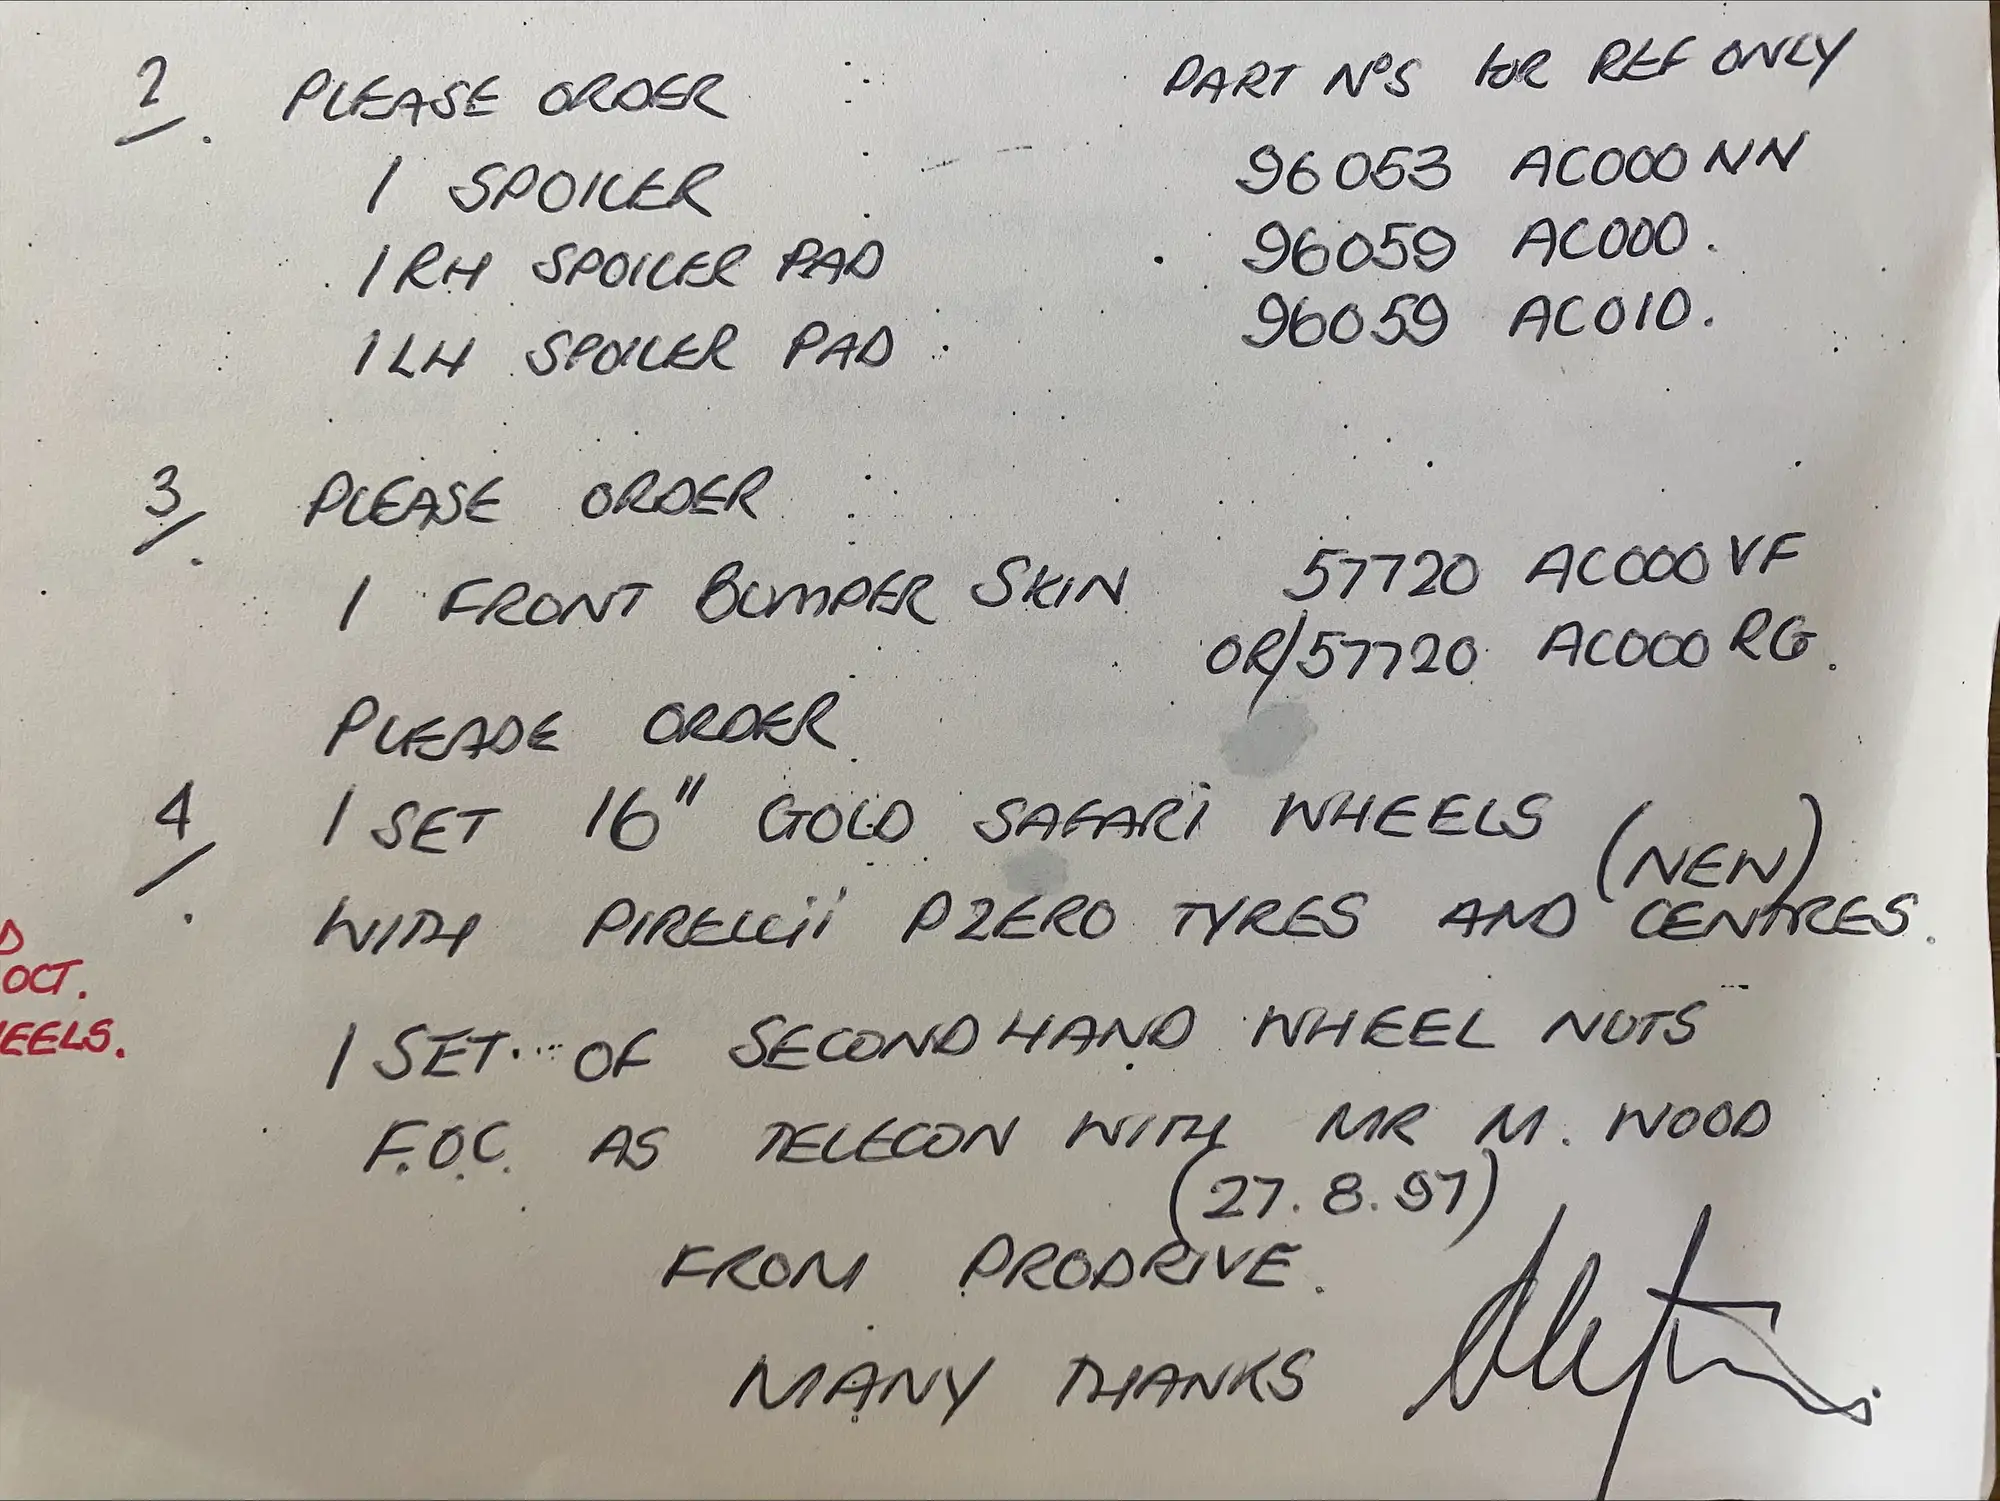 2. PLEASE ORDER : PART NºS FOR REF ONLY
1 SPOILER 96053 AC000NN
1 RH SPOILER PAD 96059 AC000.
1 LH SPOILER PAD 96059 AC010.
3. PLEASE ORDER :
1 FRONT BUMPER SKIN 57720 AC000VF
OR/57720 AC000RG.
PLEASE ORDER
4. 1 SET 16" GOLD SAFARI WHEELS (NEW)
WITH PIRELLII PZERO TYRES AND CENTRES.
D
OCT.
EELS.
1 SET OF SECONDHAND WHEEL NUTS
F.O.C. AS TELECON WITH MR M. WOOD
(27.8.97)
FROM PRODRIVE.
MANY THANKS